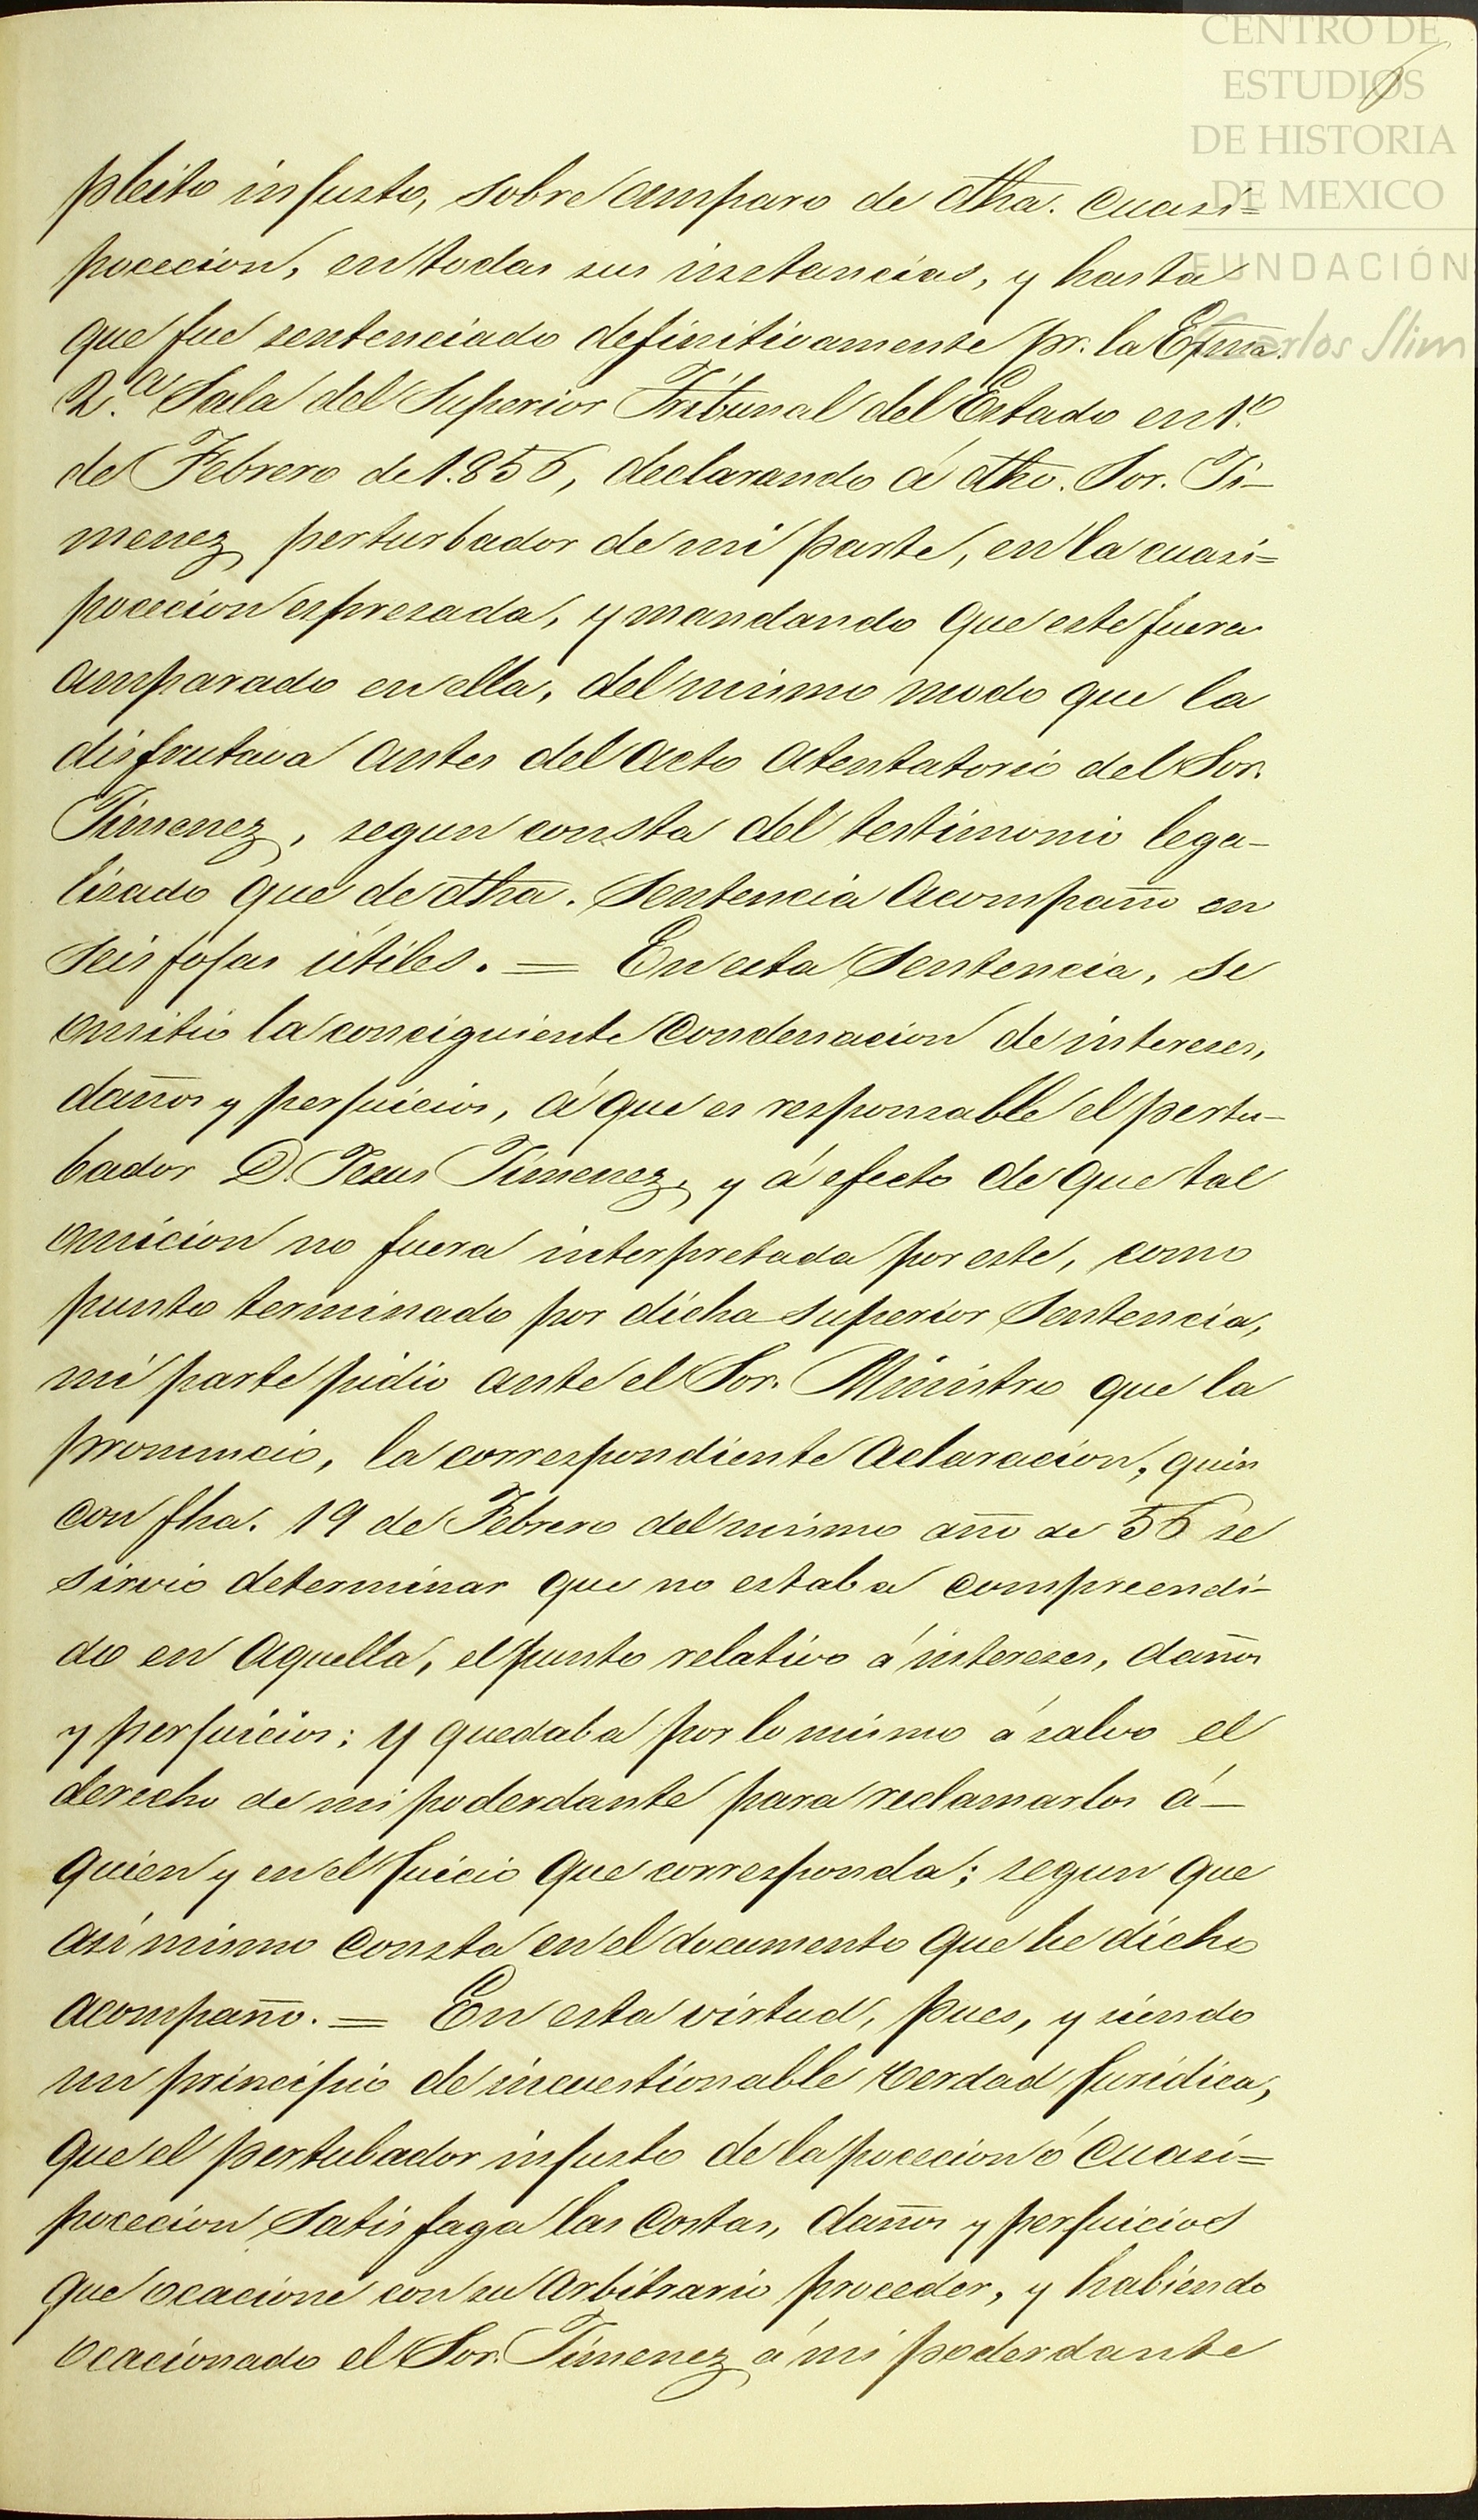 CENTRO DE
ESTUDIOS
DE HISTORIA
DE MEXICO
FUNDACIÓN
Carlos Slim
pleito injusto, sobre amparo de dha. cuasi=
pocecion, en todas sus instancias, y hasta
que fue sentenciado definitivamente pr. la Exma.
2.ª Sala del Superior Tribunal del Estado en 1.º
de Febrero de 1.856, declarando á dho. Sor. Ji-
menez perturbador de mi parte, en la cuasi=
pocecion espresada, y mandando que este fuera
amparado en ella, del mismo modo que la
disfrutava antes del acto atentatorio del Sor.
Jimenez, segun consta del testimonio lega-
lisado que de dha. Sentencia acompaño en
seis fojas útiles. = En esta Sentencia, se
omitió la conciguiente condenacion de intereses,
daños y perjuicios, á que es responsable el pertu-
bador D. Jesus Jimenez, y á efecto de que tal
omicion no fuera interpretada por este, como
punto terminado por dicha superior Sentencia,
mi parte pidio ante el Sor. Ministro que la
pronuncio, la correspondiente aclaracion, quin
con fha. 19 de Febrero del mismo año de 56 se
sirvio determinar que no estaba compreendi-
do en aquella, el punto relativo á intereses, daños
y perjuicios; y quedaba por lo mismo á salvo el
derecho de mi poderdante para reclamarlos á-
quien y en el juicio que corresponda; segun que
asi mismo consta en el documento que he dicho
acompaño. = En esta virtud, pues, y siendo
un principio de incuestionable verdad juridica,
que el pertubador injusto de la pocecion ó cuasi=
pocecion satisfaga las costas, daños y perjuicios
que ocacione con su arbitrario proceder, y habiendo
ocacionado el Sor. Jimenez á mi poderdante